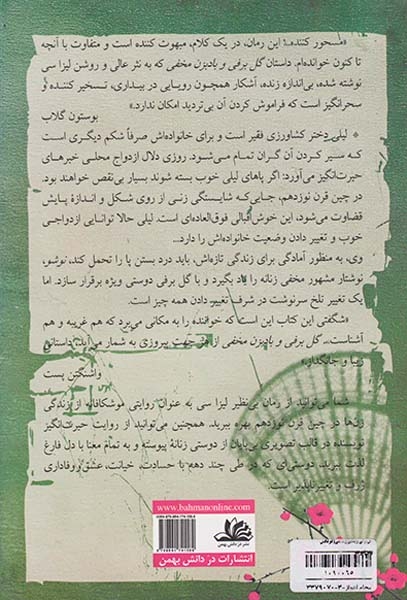 «مسحور کننده! این رمان، در یک کلام، مبهوت کننده است و متفاوت با آنچه
تا کنون خوانده‌ام. داستان گل برفی و بادبزن مخفی که به نثر عالی و روشن لیزا سی
نوشته شده، بی‌اندازه زنده، آشکار همچون رویایی در بیداری، تسخیر کننده و
سحرانگیز است که فراموش کردن آن بی‌تردید امکان ندارد.»
بوستون گلاب
لیلی دختر کشاورزی فقیر است و برای خانواده‌اش صرفاً شکم دیگری است
که سیر کردن آن گران تمام می‌شود. روزی دلال ازدواج محلی خبرهای
حیرت‌انگیز می‌آورد: اگر پاهای لیلی خوب بسته شوند بسیار بی‌نقص خواهند بود.
در چین قرن نوزدهم، جایی‌که شایستگی زنی از روی شکل و اندازهٔ پایش
قضاوت می‌شود، این خوش‌اقبالی فوق‌العاده‌ای است. لیلی حالا توانایی ازدواجی
خوب و تغییر دادن وضعیت خانواده‌اش را دارد...
وی، به منظور آمادگی برای زندگی تازه‌اش، باید درد بستن پا را تحمل کند، نوشو،
نوشتار مشهور مخفی زنانه را یاد بگیرد و با گل برفی دوستی ویژه برقرار سازد. اما
یک تغییر تلخ سرنوشت در شرف تغییر دادن همه چیز است.
«شگفتی این کتاب این است که خواننده را به مکانی می‌برد که هم غریبه و هم
آشناست. گل برفی و بادبزن مخفی از هر جهت پیروزی به شمار می‌آید. داستانی
زیبا و جانگداز.»
واشنگتن پست
شما می‌توانید از رمان بی‌نظیر لیزا سی به عنوان روایتی موشکافانه از زندگی
زن‌ها در چین قرن نوزدهم بهره ببرید. همچنین می‌توانید از روایت حیرت‌انگیز
نویسنده در قالب تصویری بی‌پایان از دوستی زنانهٔ پیوسته و به تمام معنا با دل فارغ
لذت ببرید. دوستی‌ای که در طی چند دهه با حسادت، خیانت، عشق، وفاداری
ژرف و تغییرناپذیر است.
www.bahmanonline.com
نشر در دانش بهمن
انتشارات در دانش بهمن